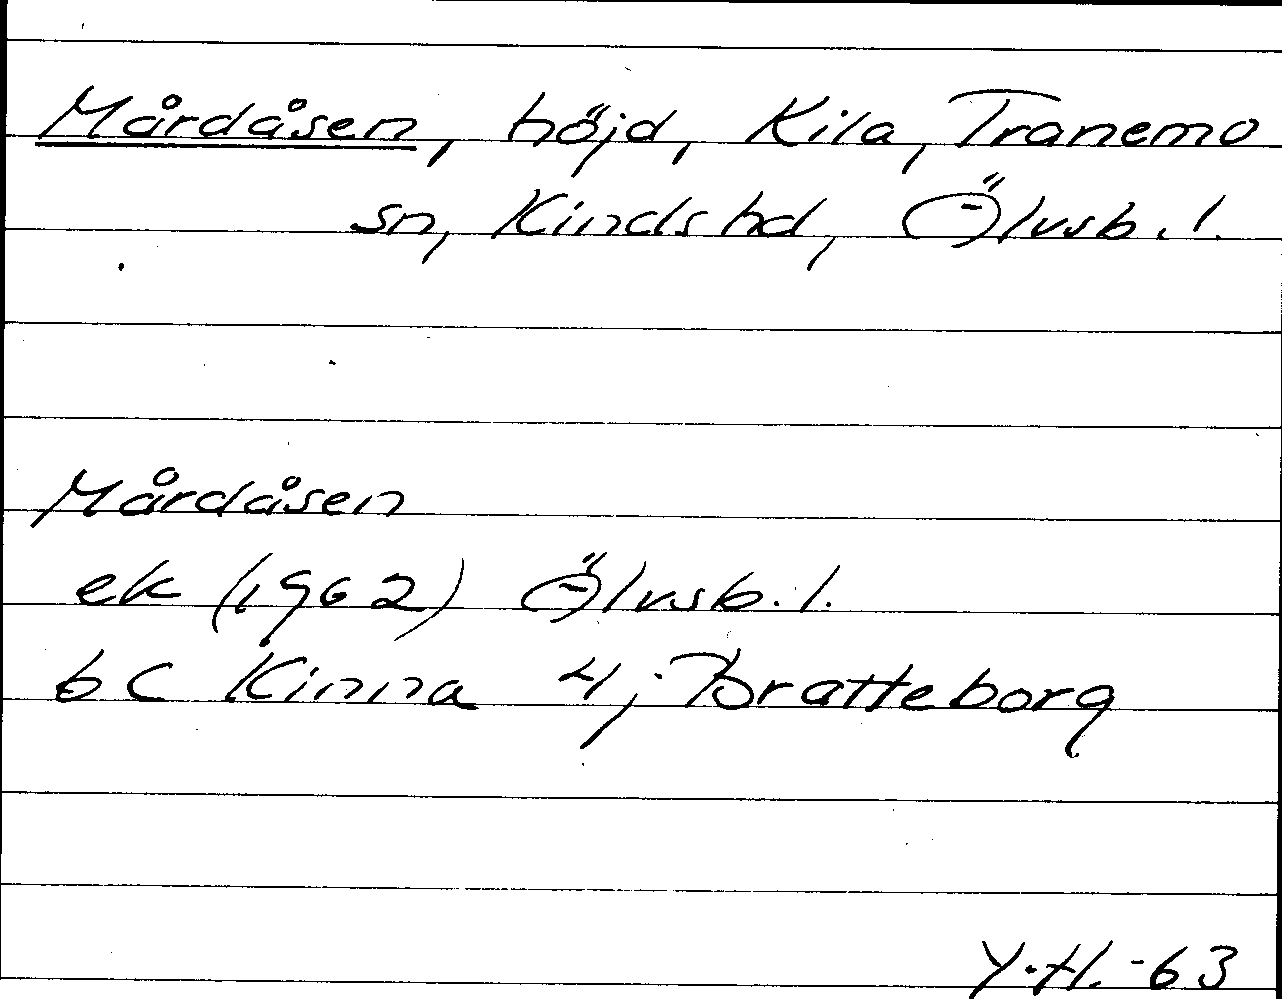 Mårdåsen, höjd, Kila, Tranemo
sn, Kinds hd, Älvsb. l.
Mårdåsen
ek (1962) Älvsb. l.
6 C Kinna 4j Bratteborg
Y.H. -63